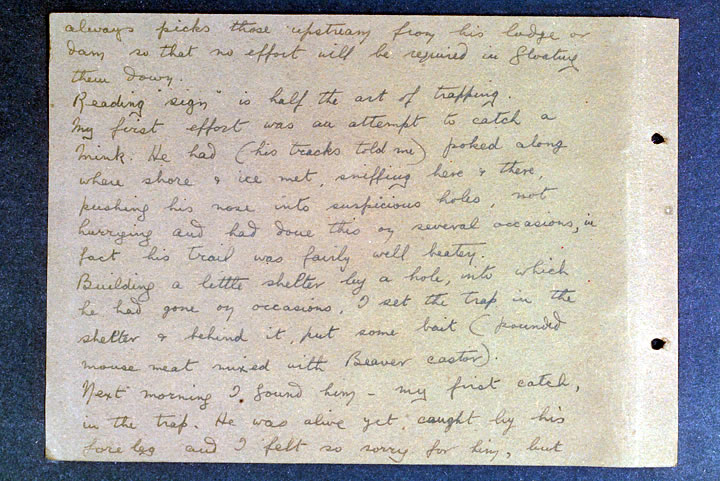 always picks those upstream from his lodge or
dam so that no effort will be required in floating
them down.
Reading "sign" is half the art of trapping.
My first effort was an attempt to catch a
Mink. He had (his tracks told me) poked along
where shore & ice met, sniffing here & there,
pushing his nose into suspicious holes, not
hurrying and had done this on several occasions, in
fact his trail was fairly well beaten.
Building a little shelter by a hole, into which
he had gone on occasions, I set the trap in the
shelter & behind it, put some bait (pounded
mouse meat mixed with Beaver castor).
Next morning I found him - my first catch,
in the trap. He was alive yet, caught by his
fore leg and I felt so sorry for him, but